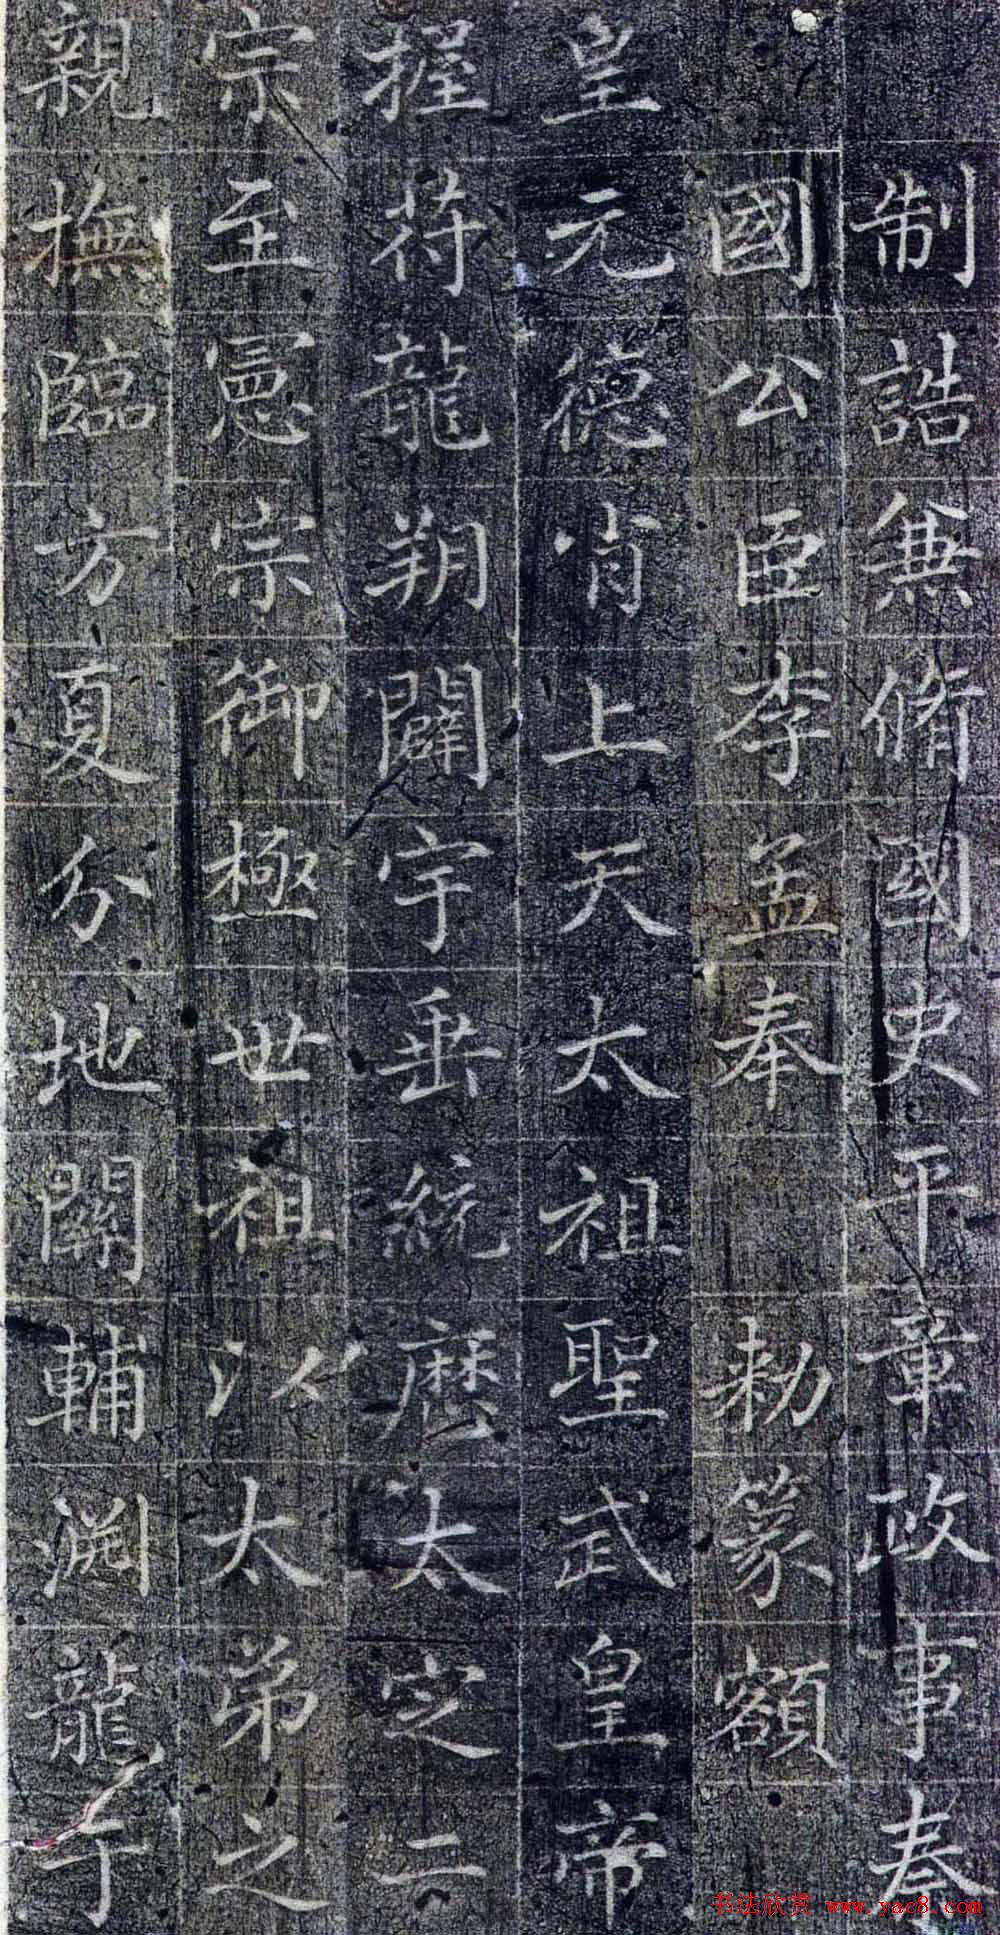 制誥兼脩國史平章政事秦
國公臣李孟奉勅篆額
皇元德肖上天太祖聖武皇帝
握符龍朔闢宇垂統歷太定二
宗至憲宗御極世祖以太弟之
親撫臨方夏分地關輔淵龍于
书法欣赏 www.yac8.com